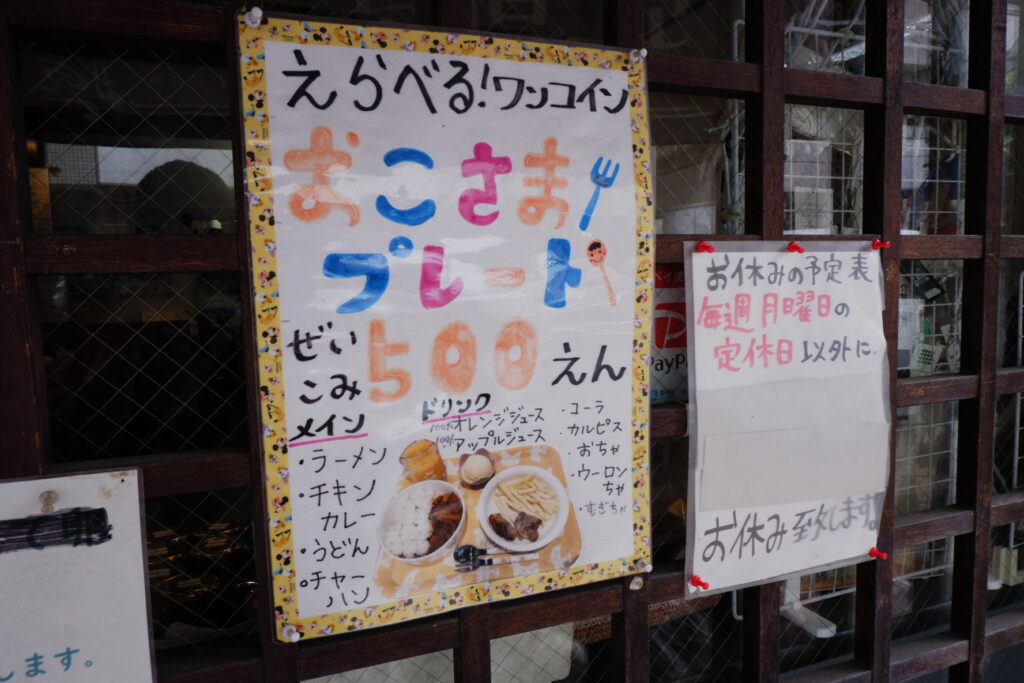 えらべる!ワンコイン
おこさま
プレート
ぜいこみ 500えん
メイン
・ラーメン
・チキンカレー
・うどん
・チャーハン
ドリンク
100%オレンジジュース
100%アップルジュース
・コーラ
・カルピス
・おちゃ
・ウーロンちゃ
・むぎちゃ
お休みの予定表
毎週月曜日の
定休日以外に
お休み致します
PayP
します。